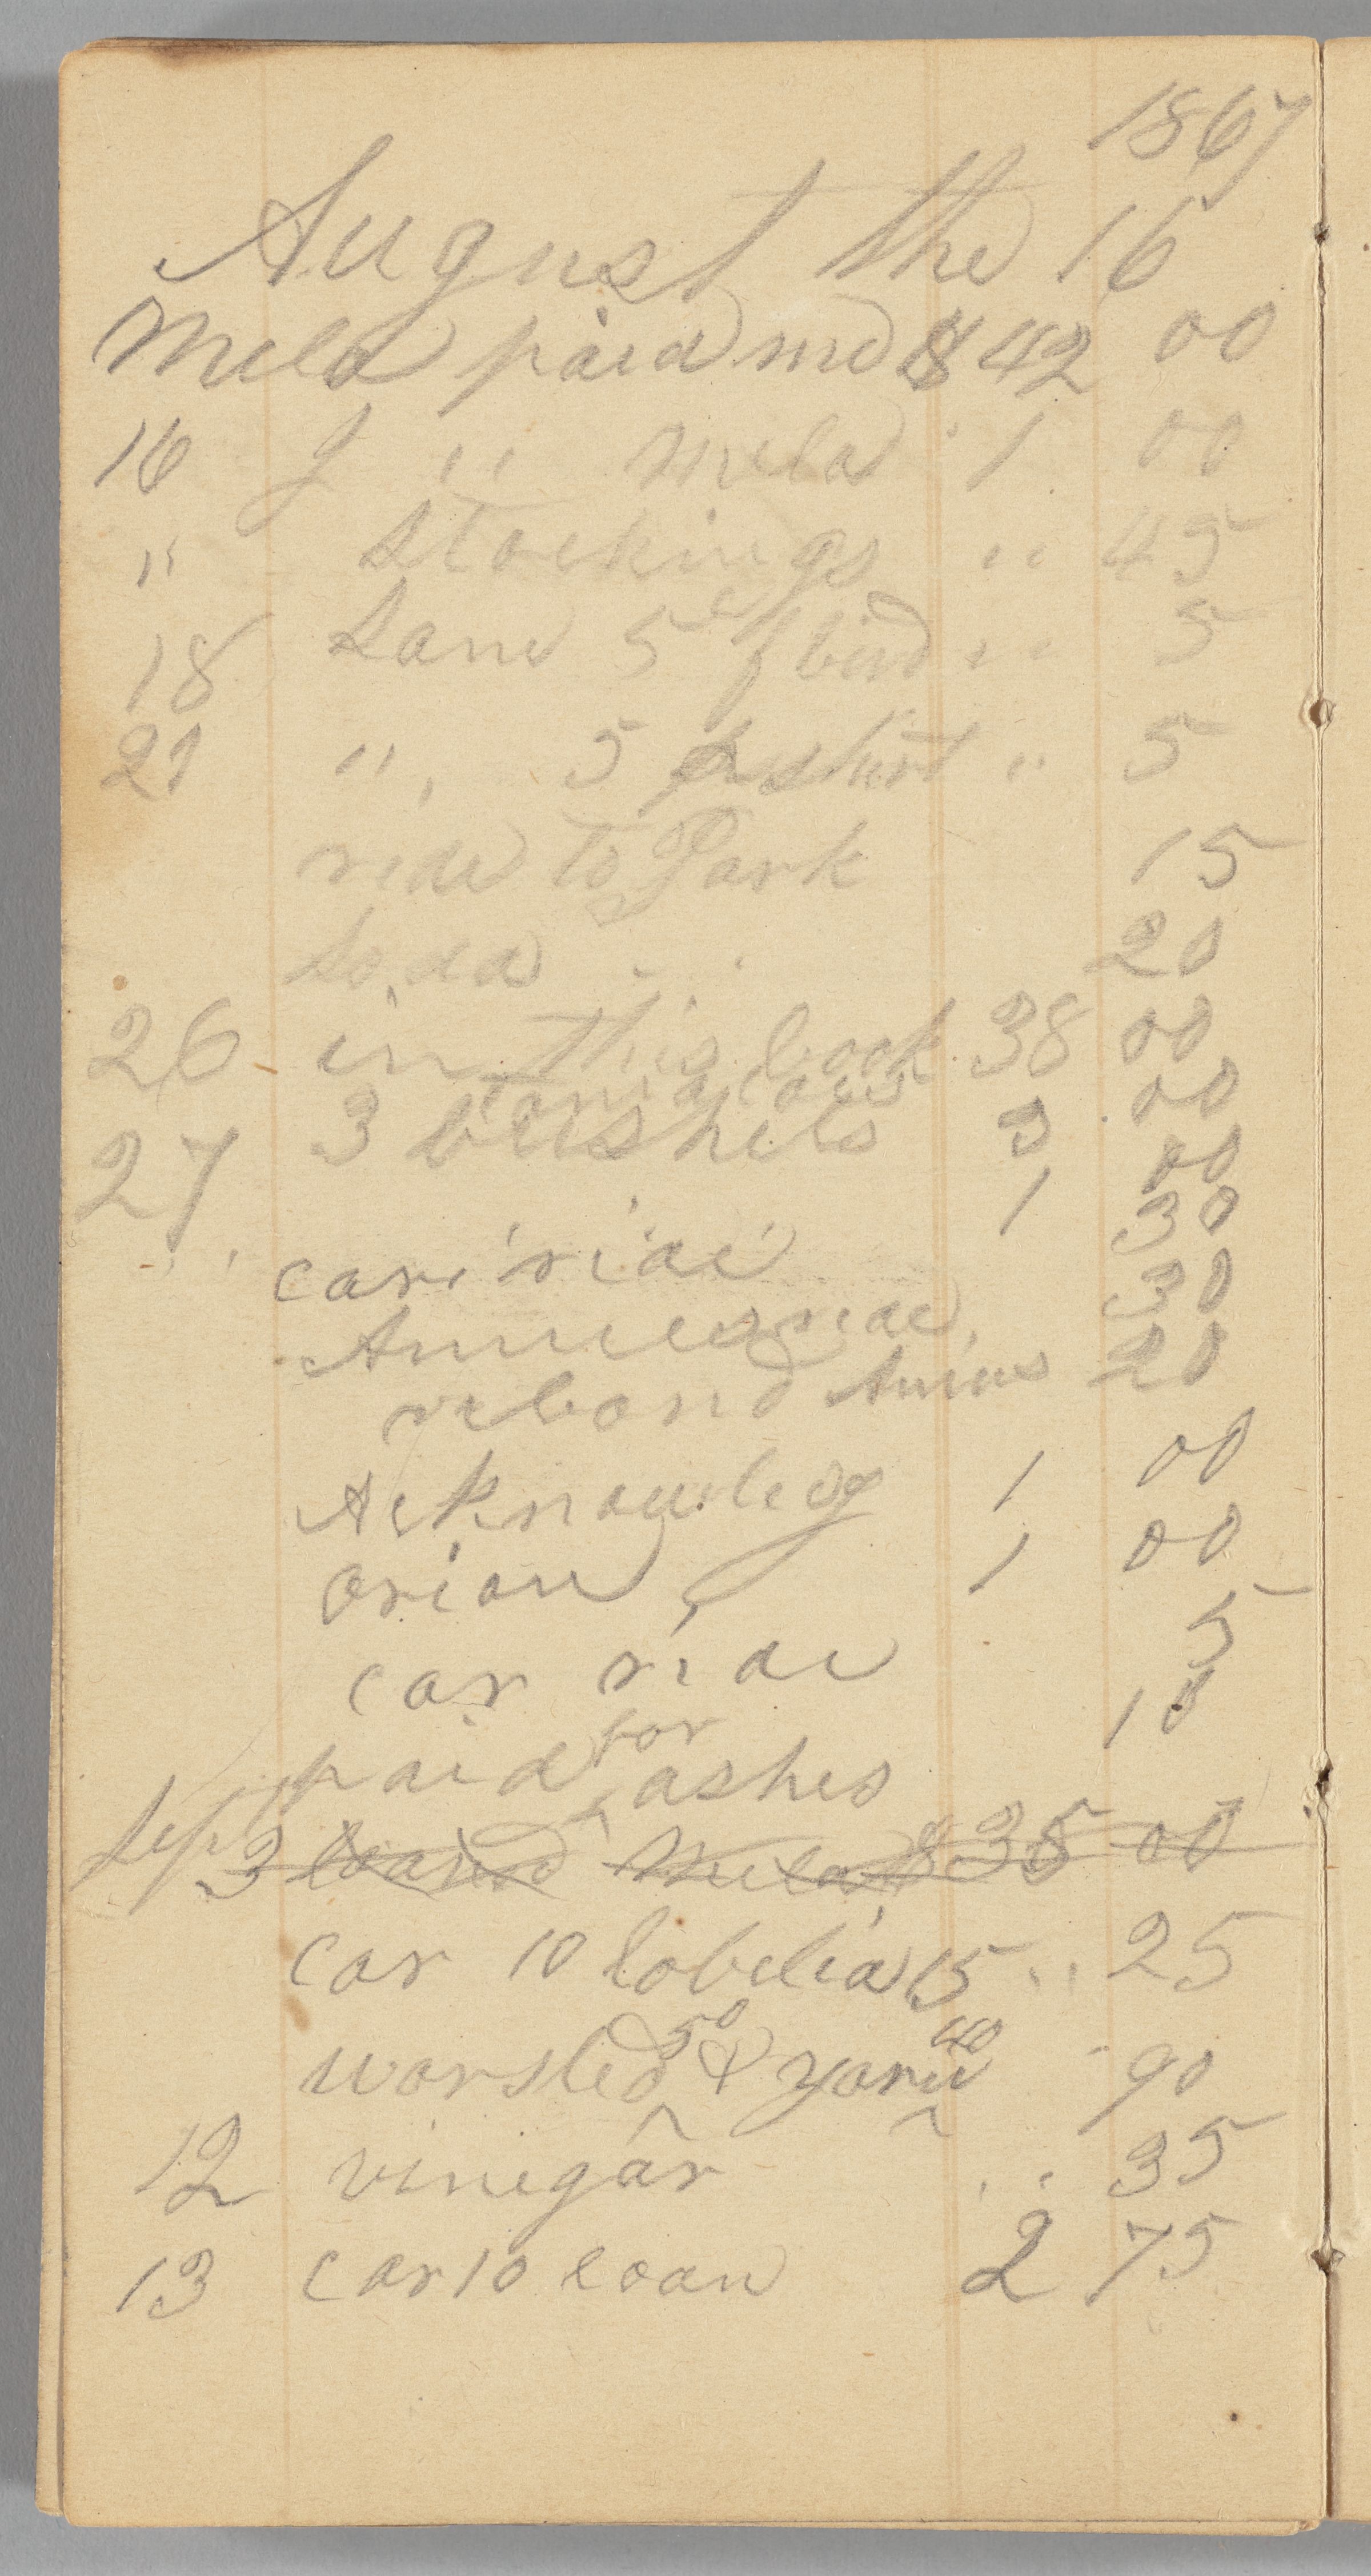 1867
August the 16
Mela paid me $42 00
16 J " mela 1 00
" Stockings " 45
18 Sand 5 f bird " 5
21 " 5 shirt " 5
ride to Park 15
Soda 20
26 in this book 38 00
tomatoes
27 3 bushels 3 00
1 00
car ride 30
Annies ride 30
ribond Annies 20
Acknowledg 1 00
orion 1 00
car ride 5
paid for ashes 10
Sep 3 loaned Mela $35 00
car 10 lobelia 15 " 25
50 40
worsted & yarn 90
12 vinegar 35
13 car 10 loan 2 75